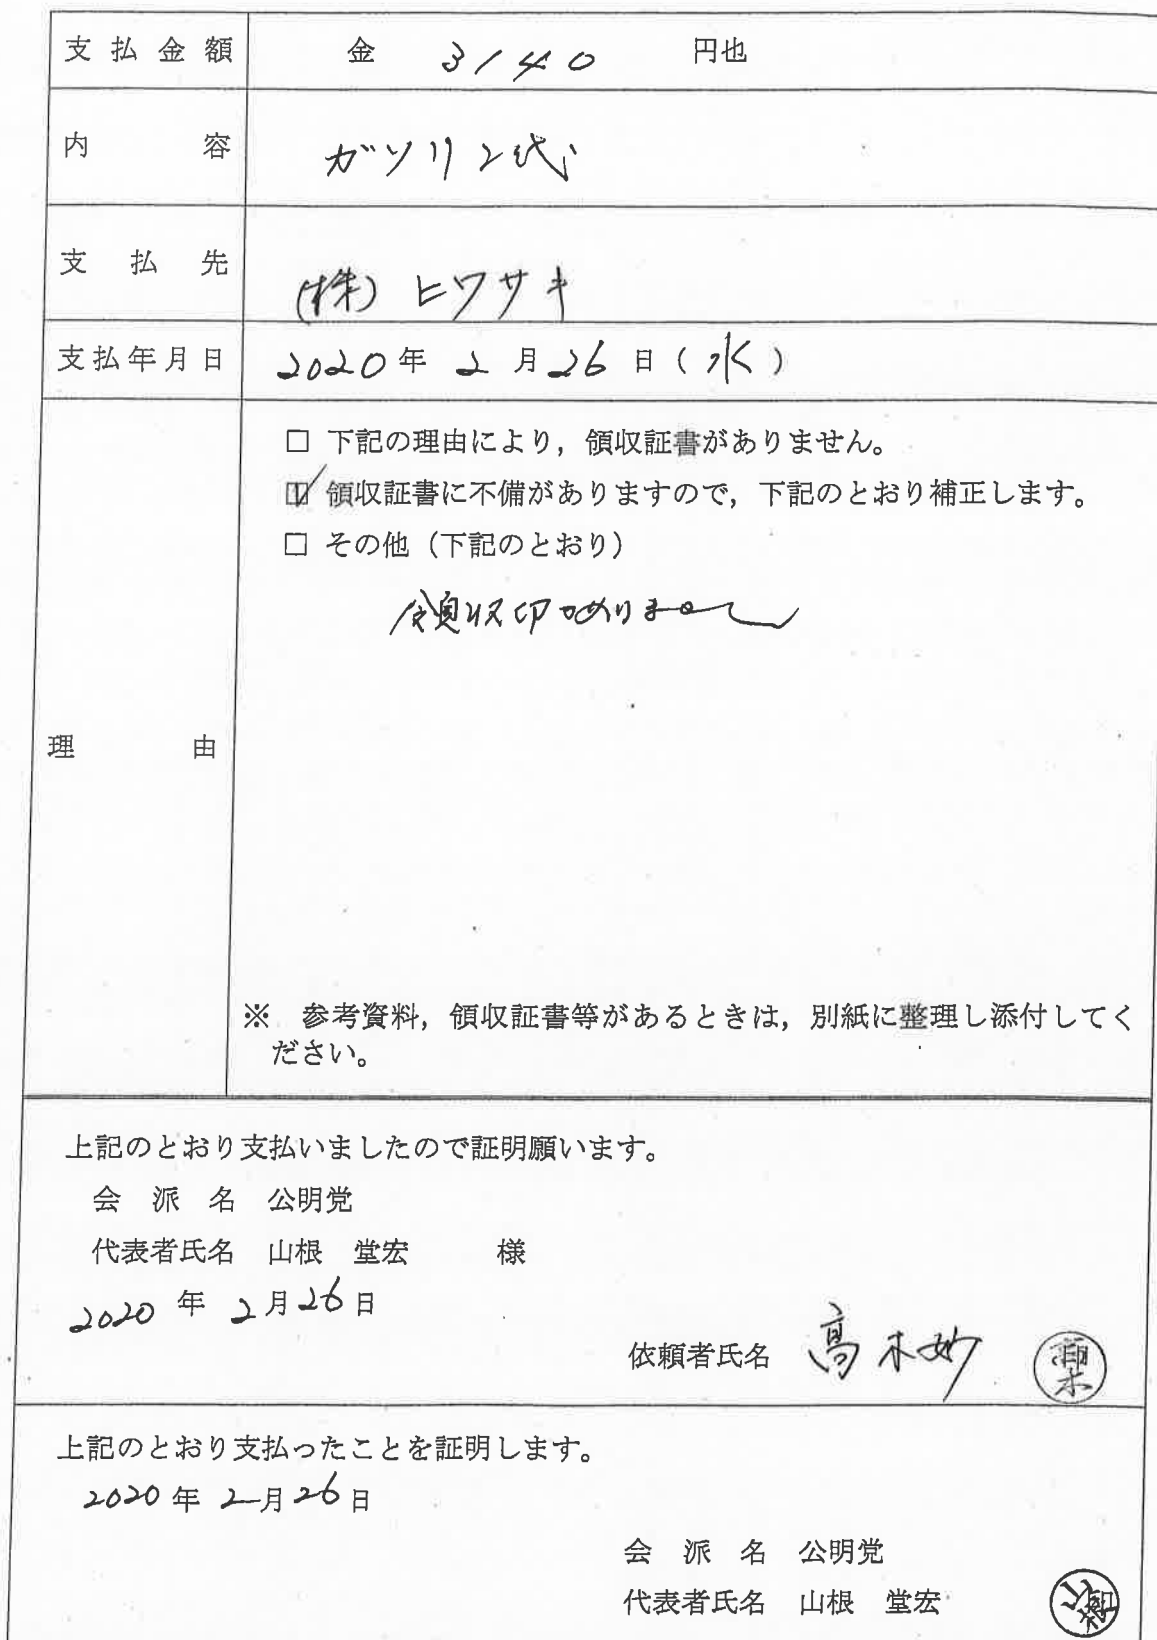 支払金額 金 3140 円也
内容 ガソリン代
支払先 (株)ヒワサキ
支払年月日 2020年 2月26日(水)
□ 下記の理由により，領収証書がありません。
☑ 領収証書に不備がありますので，下記のとおり補正します。
□ その他（下記のとおり）
領収印がありません
理由
※ 参考資料，領収証書等があるときは，別紙に整理し添付してく
ださい。
上記のとおり支払いましたので証明願います。
会派名 公明党
代表者氏名 山根 堂宏 様
2020年 2月26日
依頼者氏名 高木妙
上記のとおり支払ったことを証明します。
2020年 2月26日
会派名 公明党
代表者氏名 山根 堂宏 山根